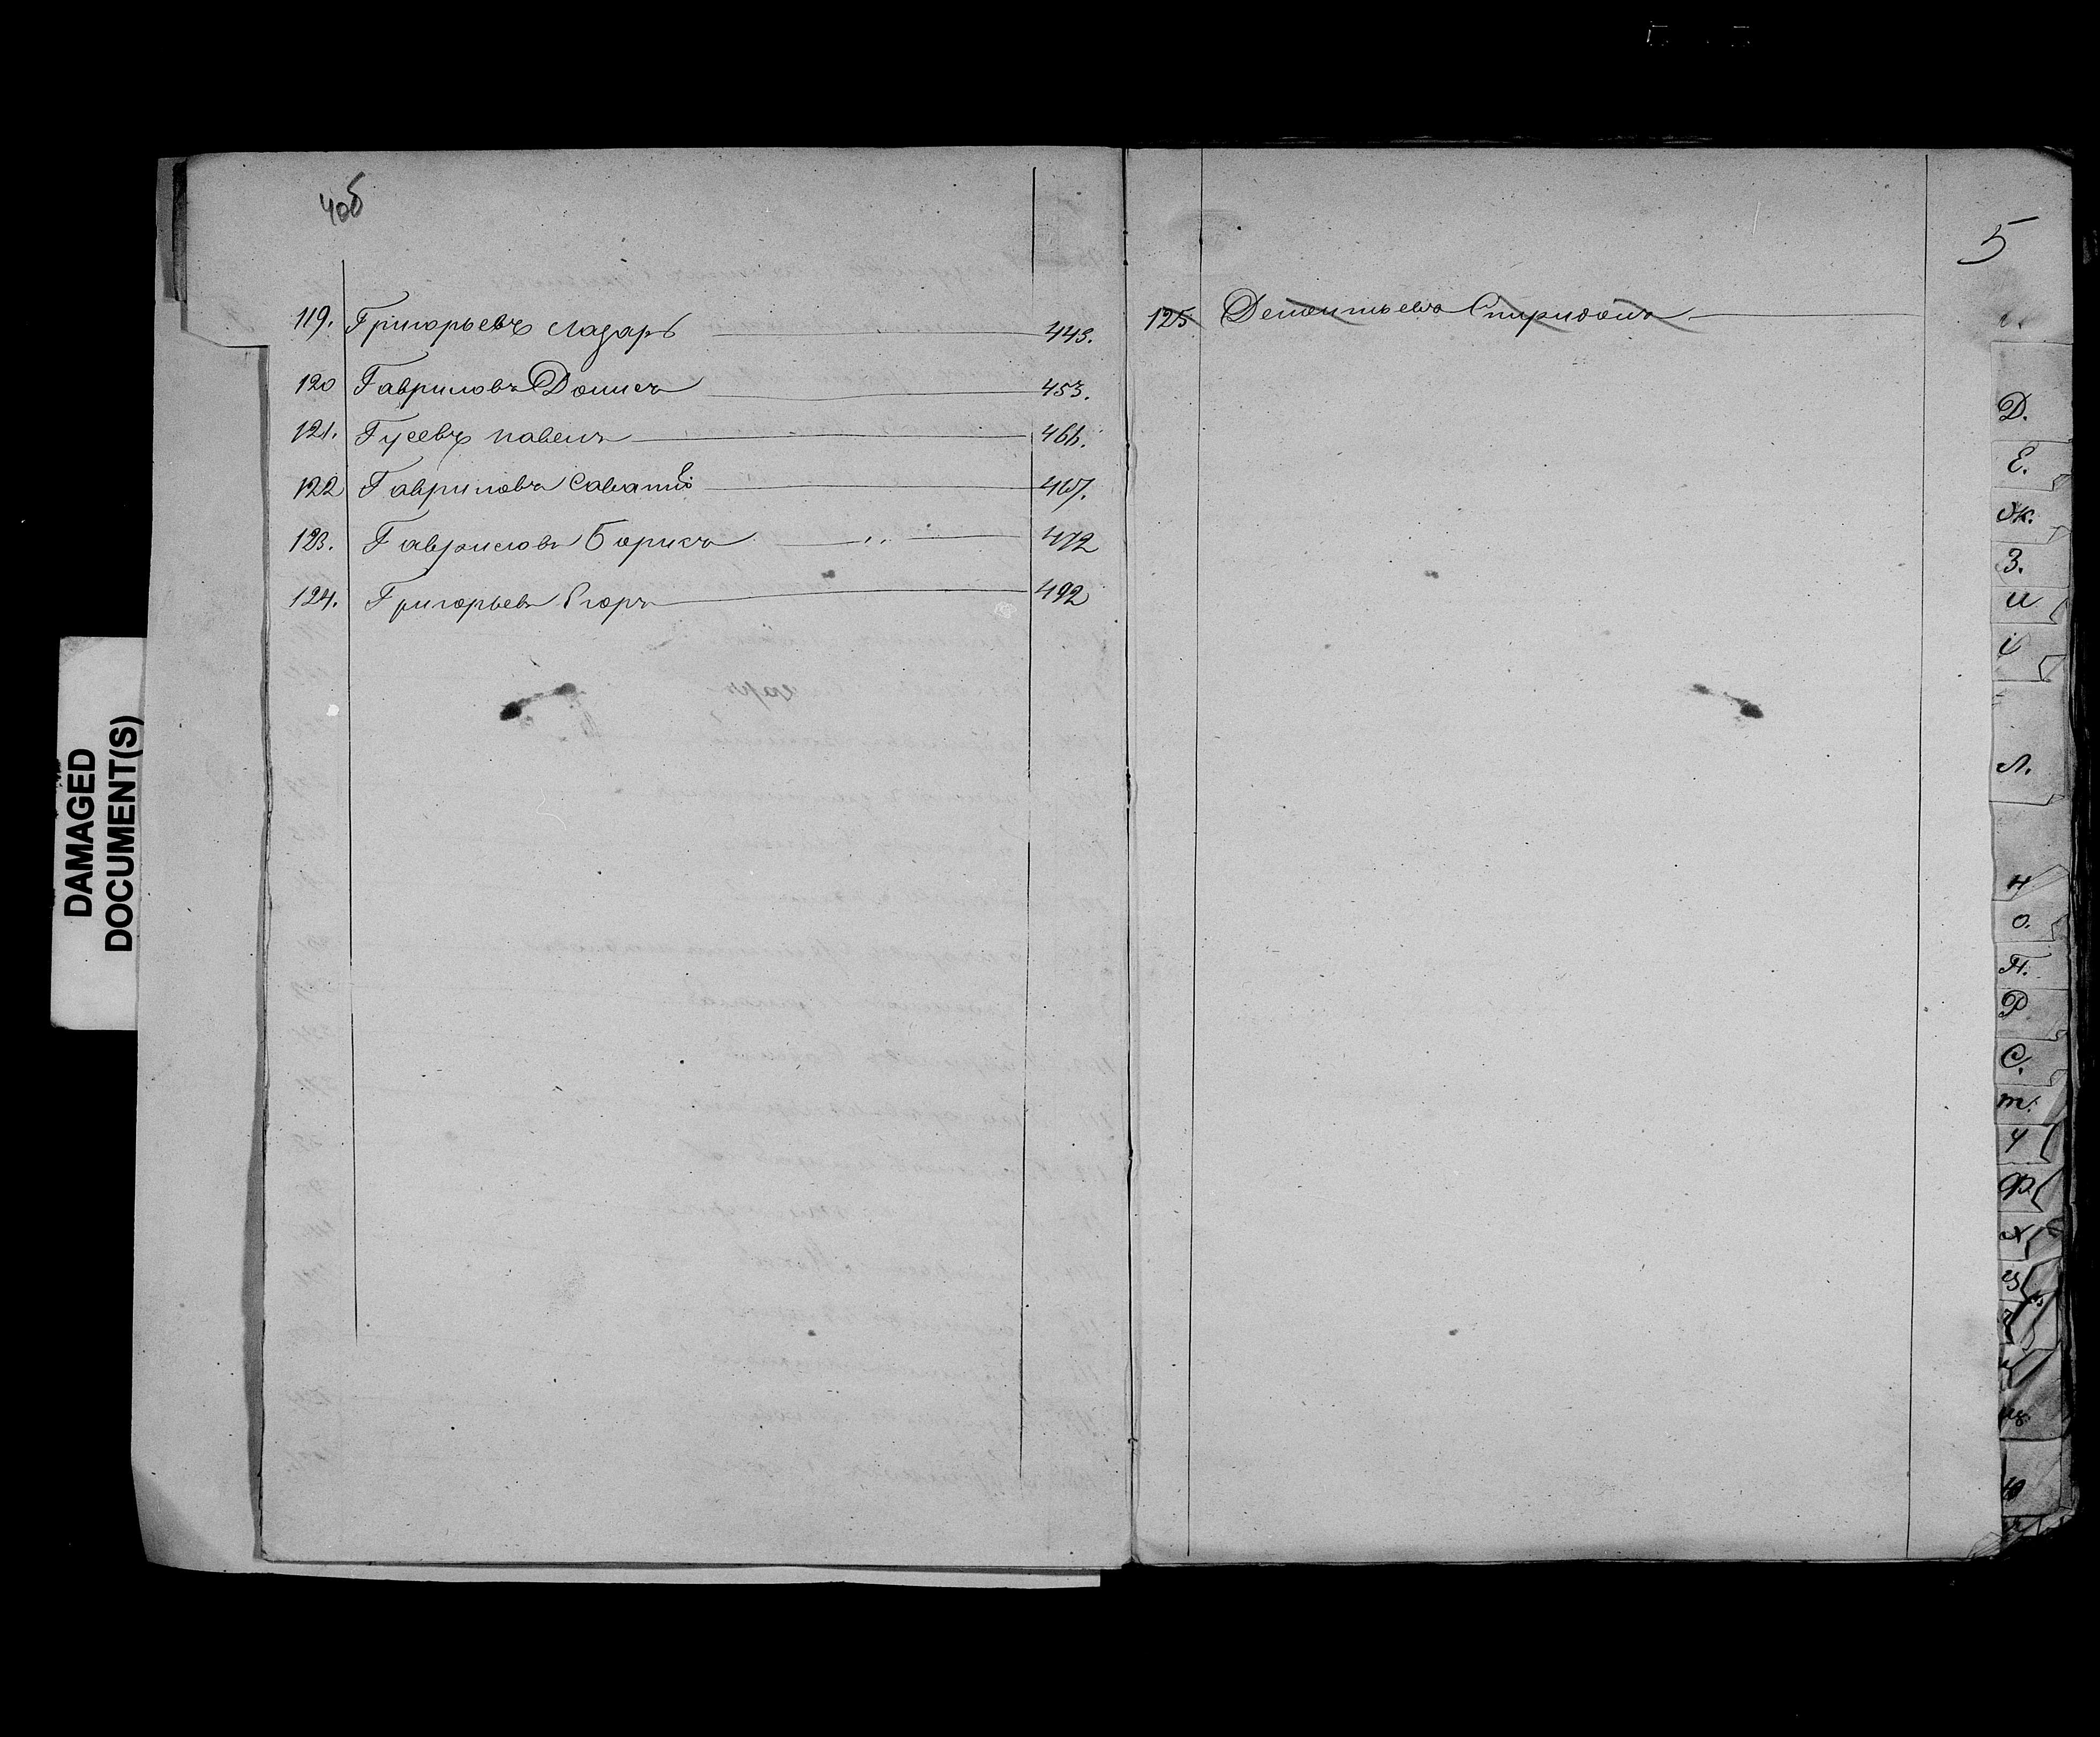 4об
119. Григорьевъ Лазарь 443.
120 Гавриловъ Донисъ 453.
121. Гусевъ Павелъ 466.
122 Гавриловъ Саватій 467.
123. Гавриловъ Борисъ 472
124. Григорьевъ Егоръ 492
DAMAGED
DOCUMENT(S)
5
125 Дементьевъ Спиридонъ
Д.
Е.
Ж.
З.
И
І
Л.
Н
О.
П.
Р
С.
Т.
У
Ф.
Х
Ц
Ю